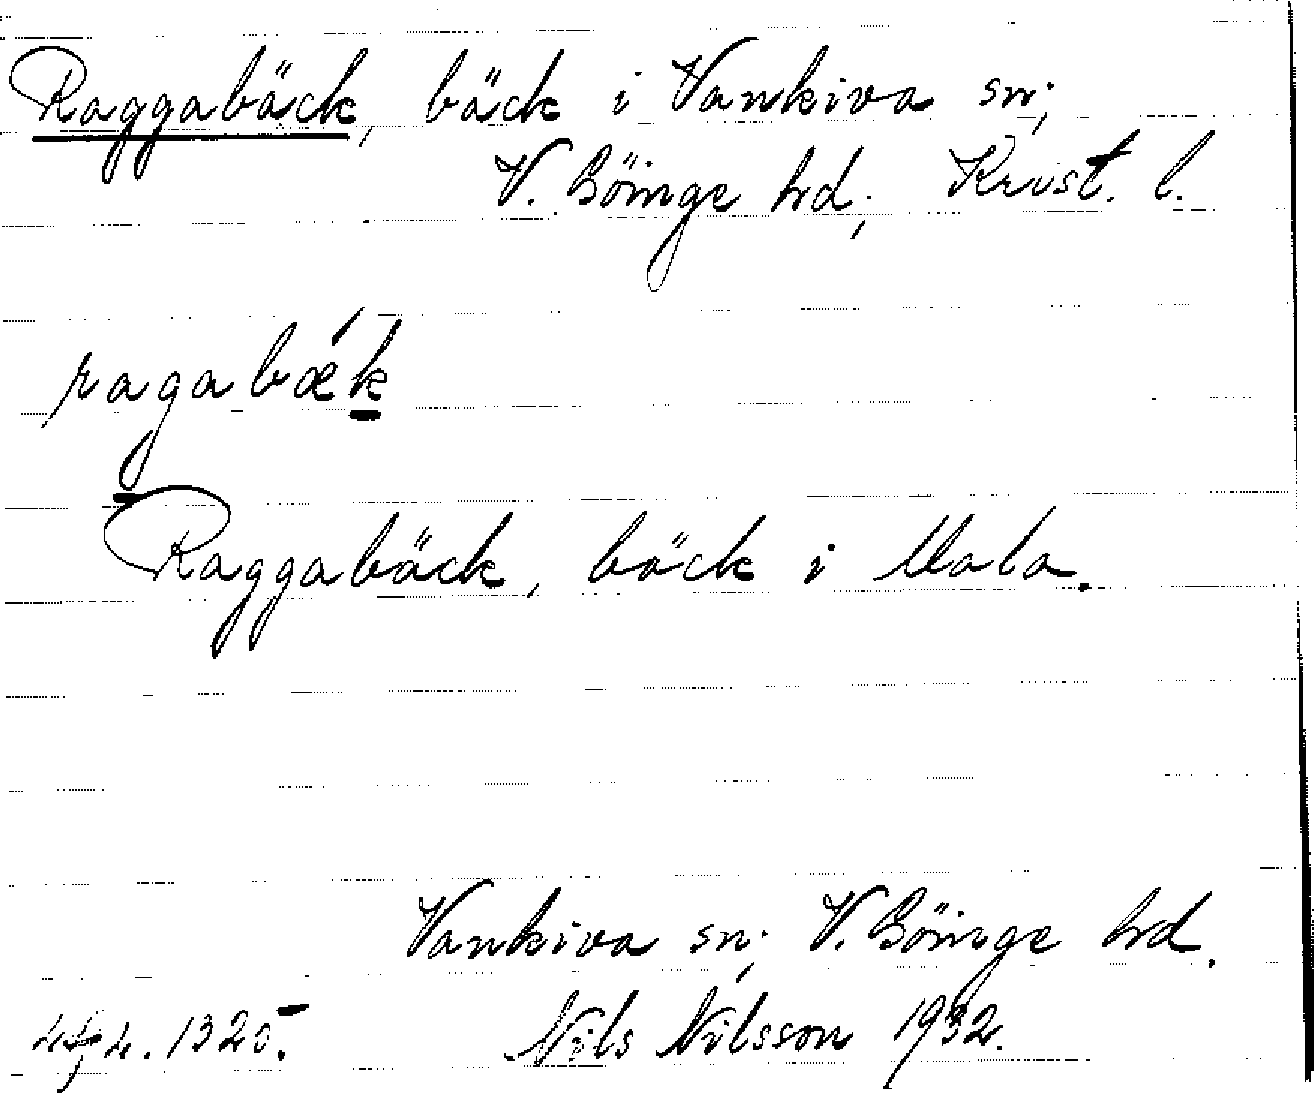 Raggabäck, bäck i Vankiva sn;
V. Göinge hd; Krist. l.
ragabæk
Raggabäck, bäck i Mala.
Vankiva sn; V. Göinge hd.
1320. Nils Nilsson 1932.